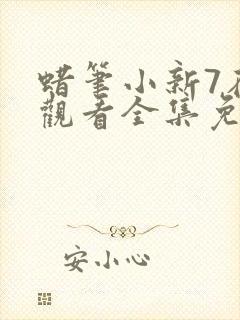 蜡筆小新7
觀看全集免
安小心